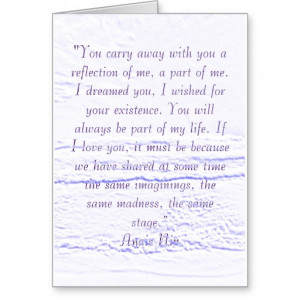 "You carry away with you a
reflection of me, a part of me.
I dreamed you, I wished for
your existence. You will
always be part of my life. If
I love you, it must be because
we have shared at some time
the same imaginings, the
same madness, the same
stage."
--Anais Nin